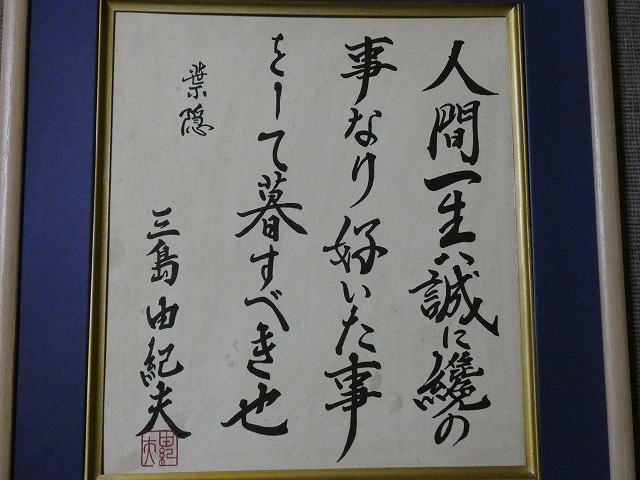 人間一生ハ誠に纔の
事なり好いた事
をして暮すべき也
葉隠
三島由紀夫